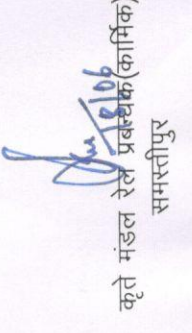 18/06
कृते मंडल रेल प्रबन्धक(कार्मिक)
समस्तीपुर